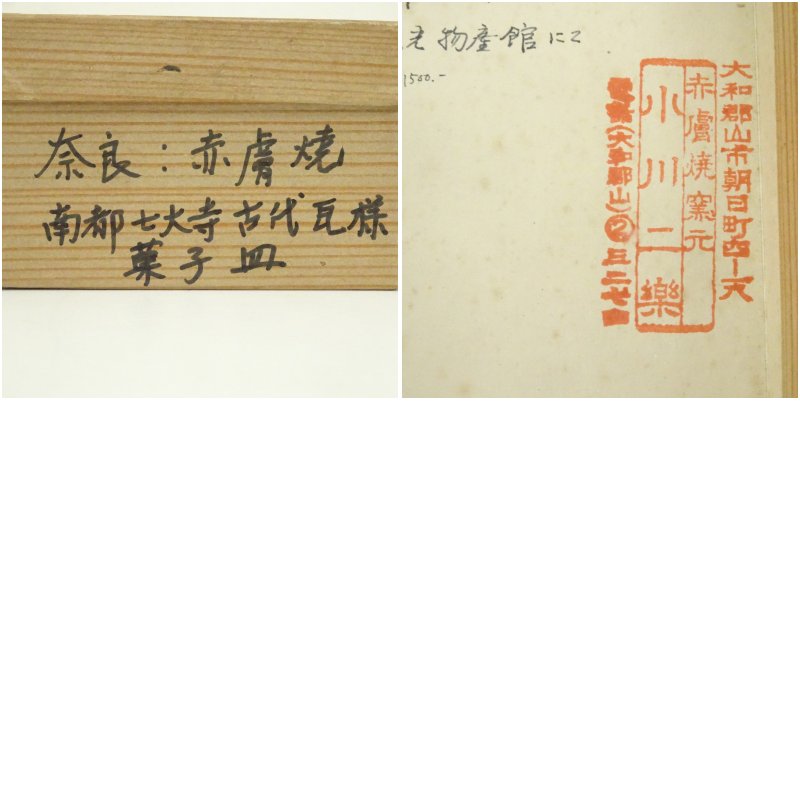 奈良：赤膚焼
南都七大寺古代瓦様
菓子皿
物産館にて
1500.-
大和郡山市朝日町四ー一六
赤膚焼窯元
小川二樂
(大和郡山)の三二七